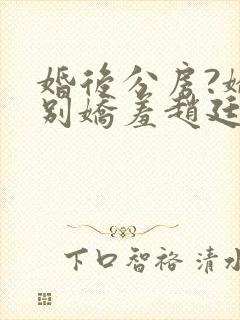 婚後分房?她
別嬌羞趙廷
下口智裕 清水